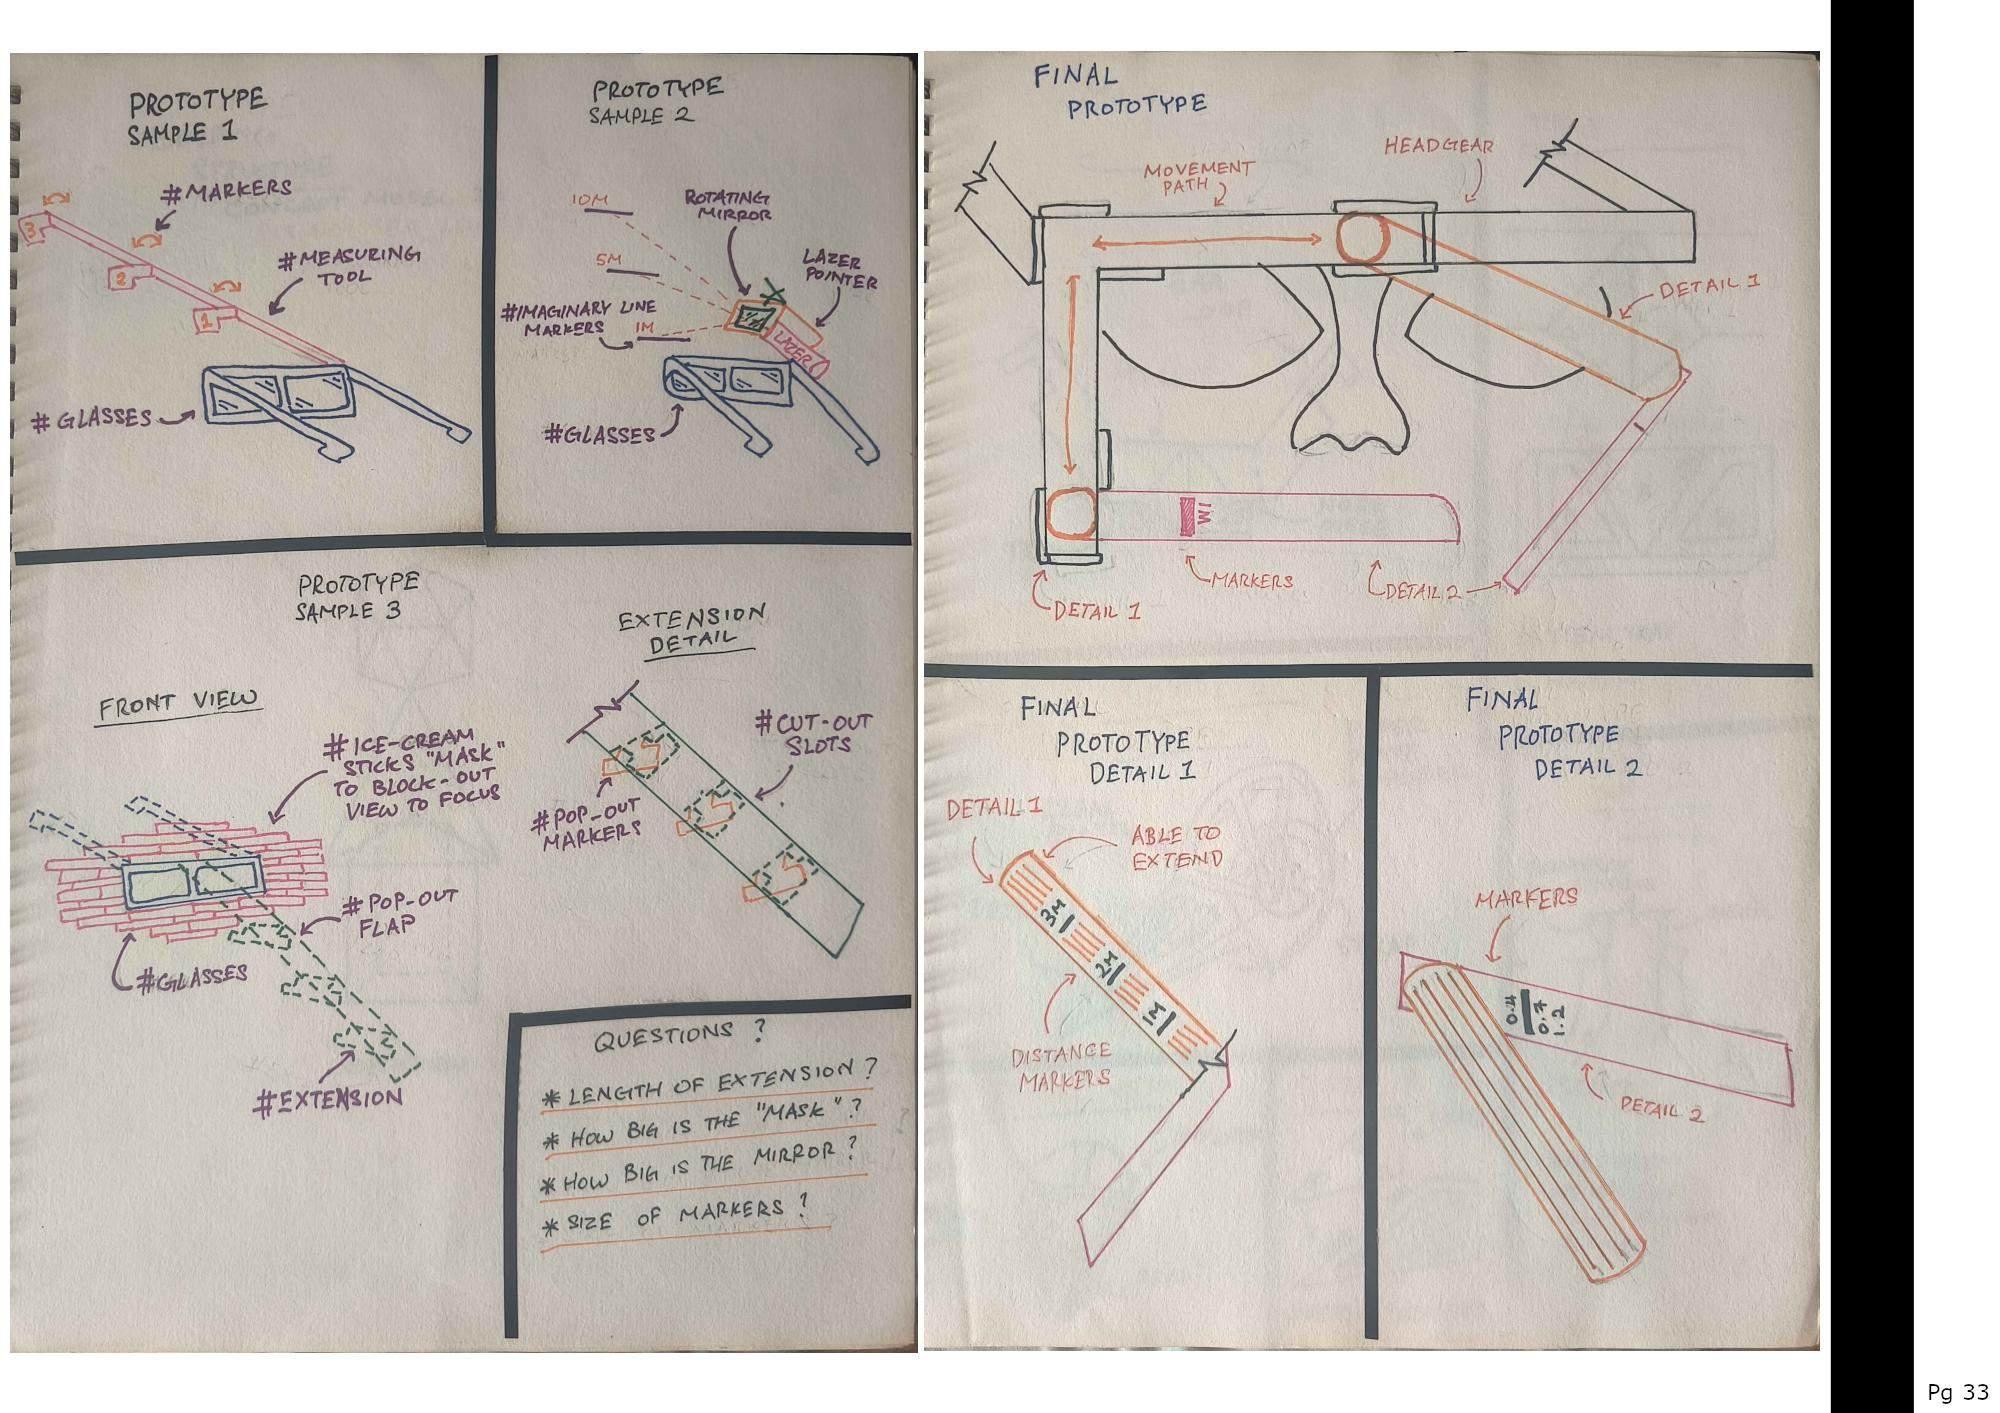 PROTOTYPE
SAMPLE 1
# MARKERS
3
2
1
# MEASURING
TOOL
# GLASSES
PROTOTYPE
SAMPLE 2
10M
5M
1M
ROTATING
MIRROR
LAZER
POINTER
#IMAGINARY LINE
MARKERS
LAZER
#GLASSES
PROTOTYPE
SAMPLE 3
FRONT VIEW
#ICE-CREAM
STICKS "MASK"
TO BLOCK-OUT
VIEW TO FOCUS
#POP-OUT
FLAP
#GLASSES
#EXTENSION
EXTENSION
DETAIL
#CUT-OUT
SLOTS
#POP-OUT
MARKERS
QUESTIONS ?
* LENGTH OF EXTENSION ?
* HOW BIG IS THE "MASK" ?
* HOW BIG IS THE MIRROR ?
* SIZE OF MARKERS ?
FINAL
PROTOTYPE
MOVEMENT
PATH
HEADGEAR
DETAIL 1
1M
MARKERS
DETAIL 2
DETAIL 1
FINAL
PROTOTYPE
DETAIL 1
DETAIL 1
ABLE TO
EXTEND
3M
2M
1M
DISTANCE
MARKERS
FINAL
PROTOTYPE
DETAIL 2
MARKERS
0.4
0.7
1.2
DETAIL 2
Pg 33